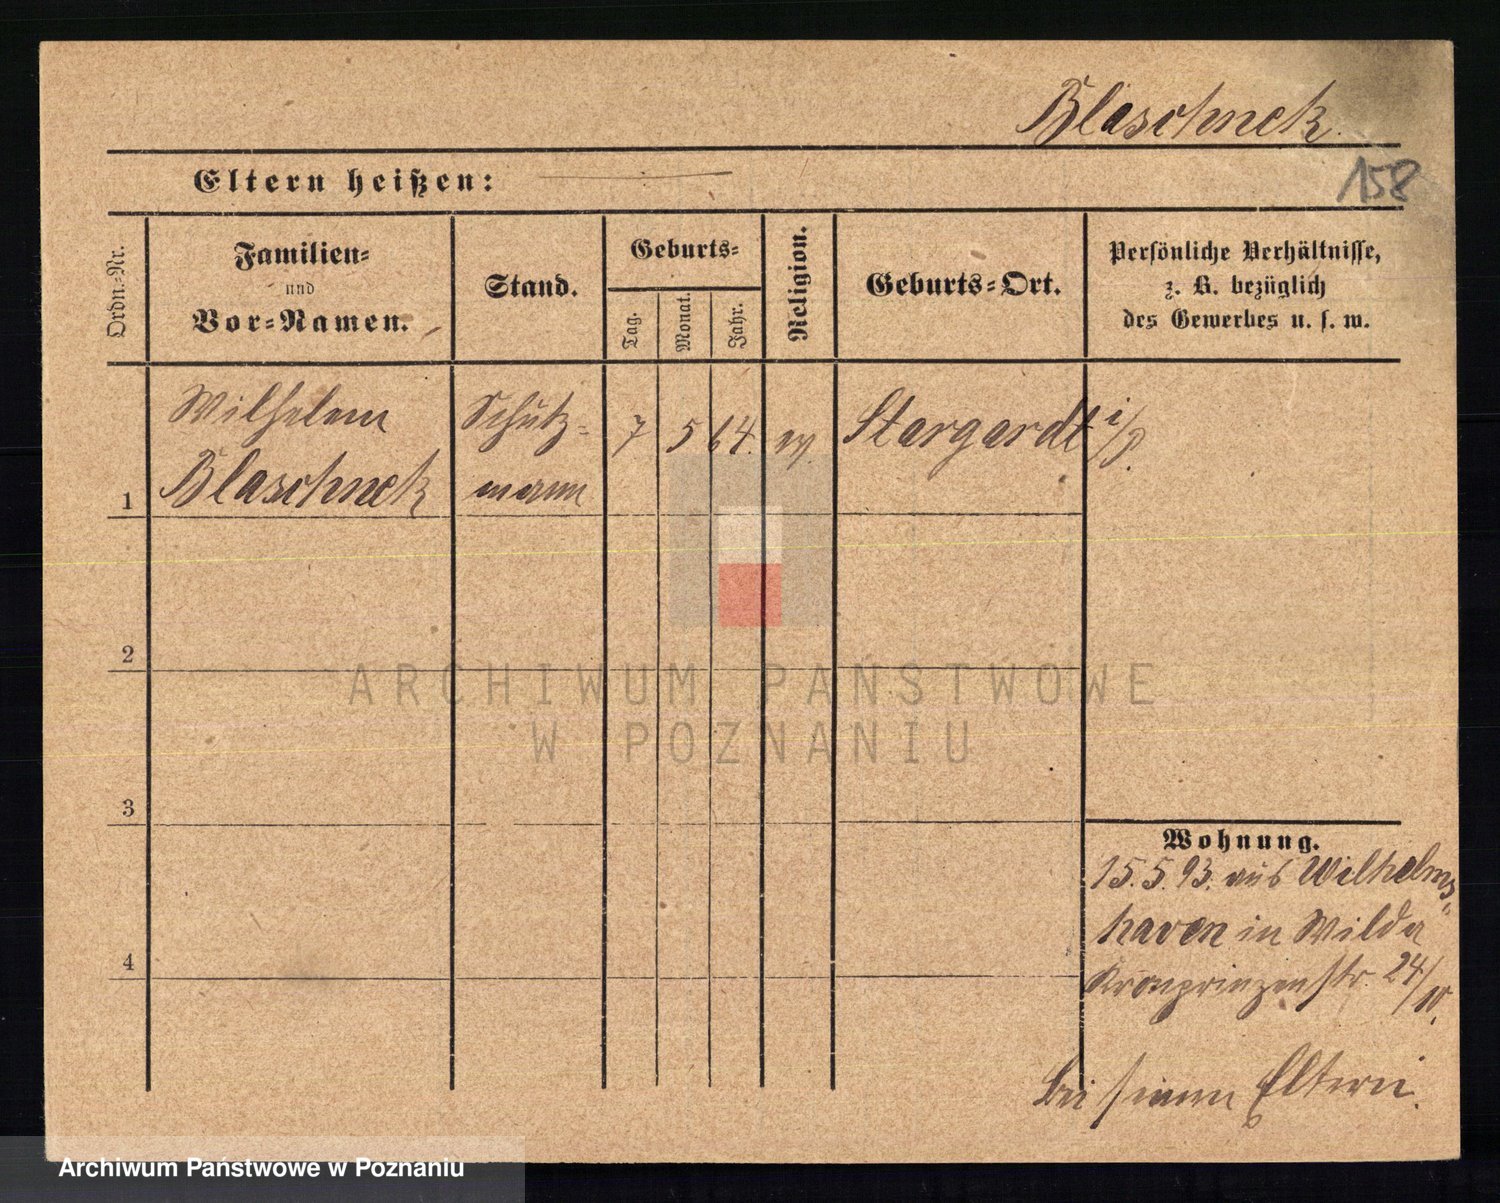 Blaschnek.
158
Eltern heißen:
Ordn.-Nr.
Familien-
und
Vor-Namen.
Stand.
Geburts-
Tag.
Monat.
Jahr.
Religion.
Geburts-Ort.
Persönliche Verhältnisse,
z. B. bezüglich
des Gewerbes u. s. w.
Wilhelm
Blaschnek
Schutz-
mann
7
5
64.
ev.
Stargardt i/P.
1
2
3
4
ARCHIWUM PAŃSTWOWE
W POZNANIU
Wohnung.
15.5.93. aus Wilhelms-
haven in Wilda
Kronprinzenstr. 24/
bei seinen Eltern.
Archiwum Państwowe w Poznaniu